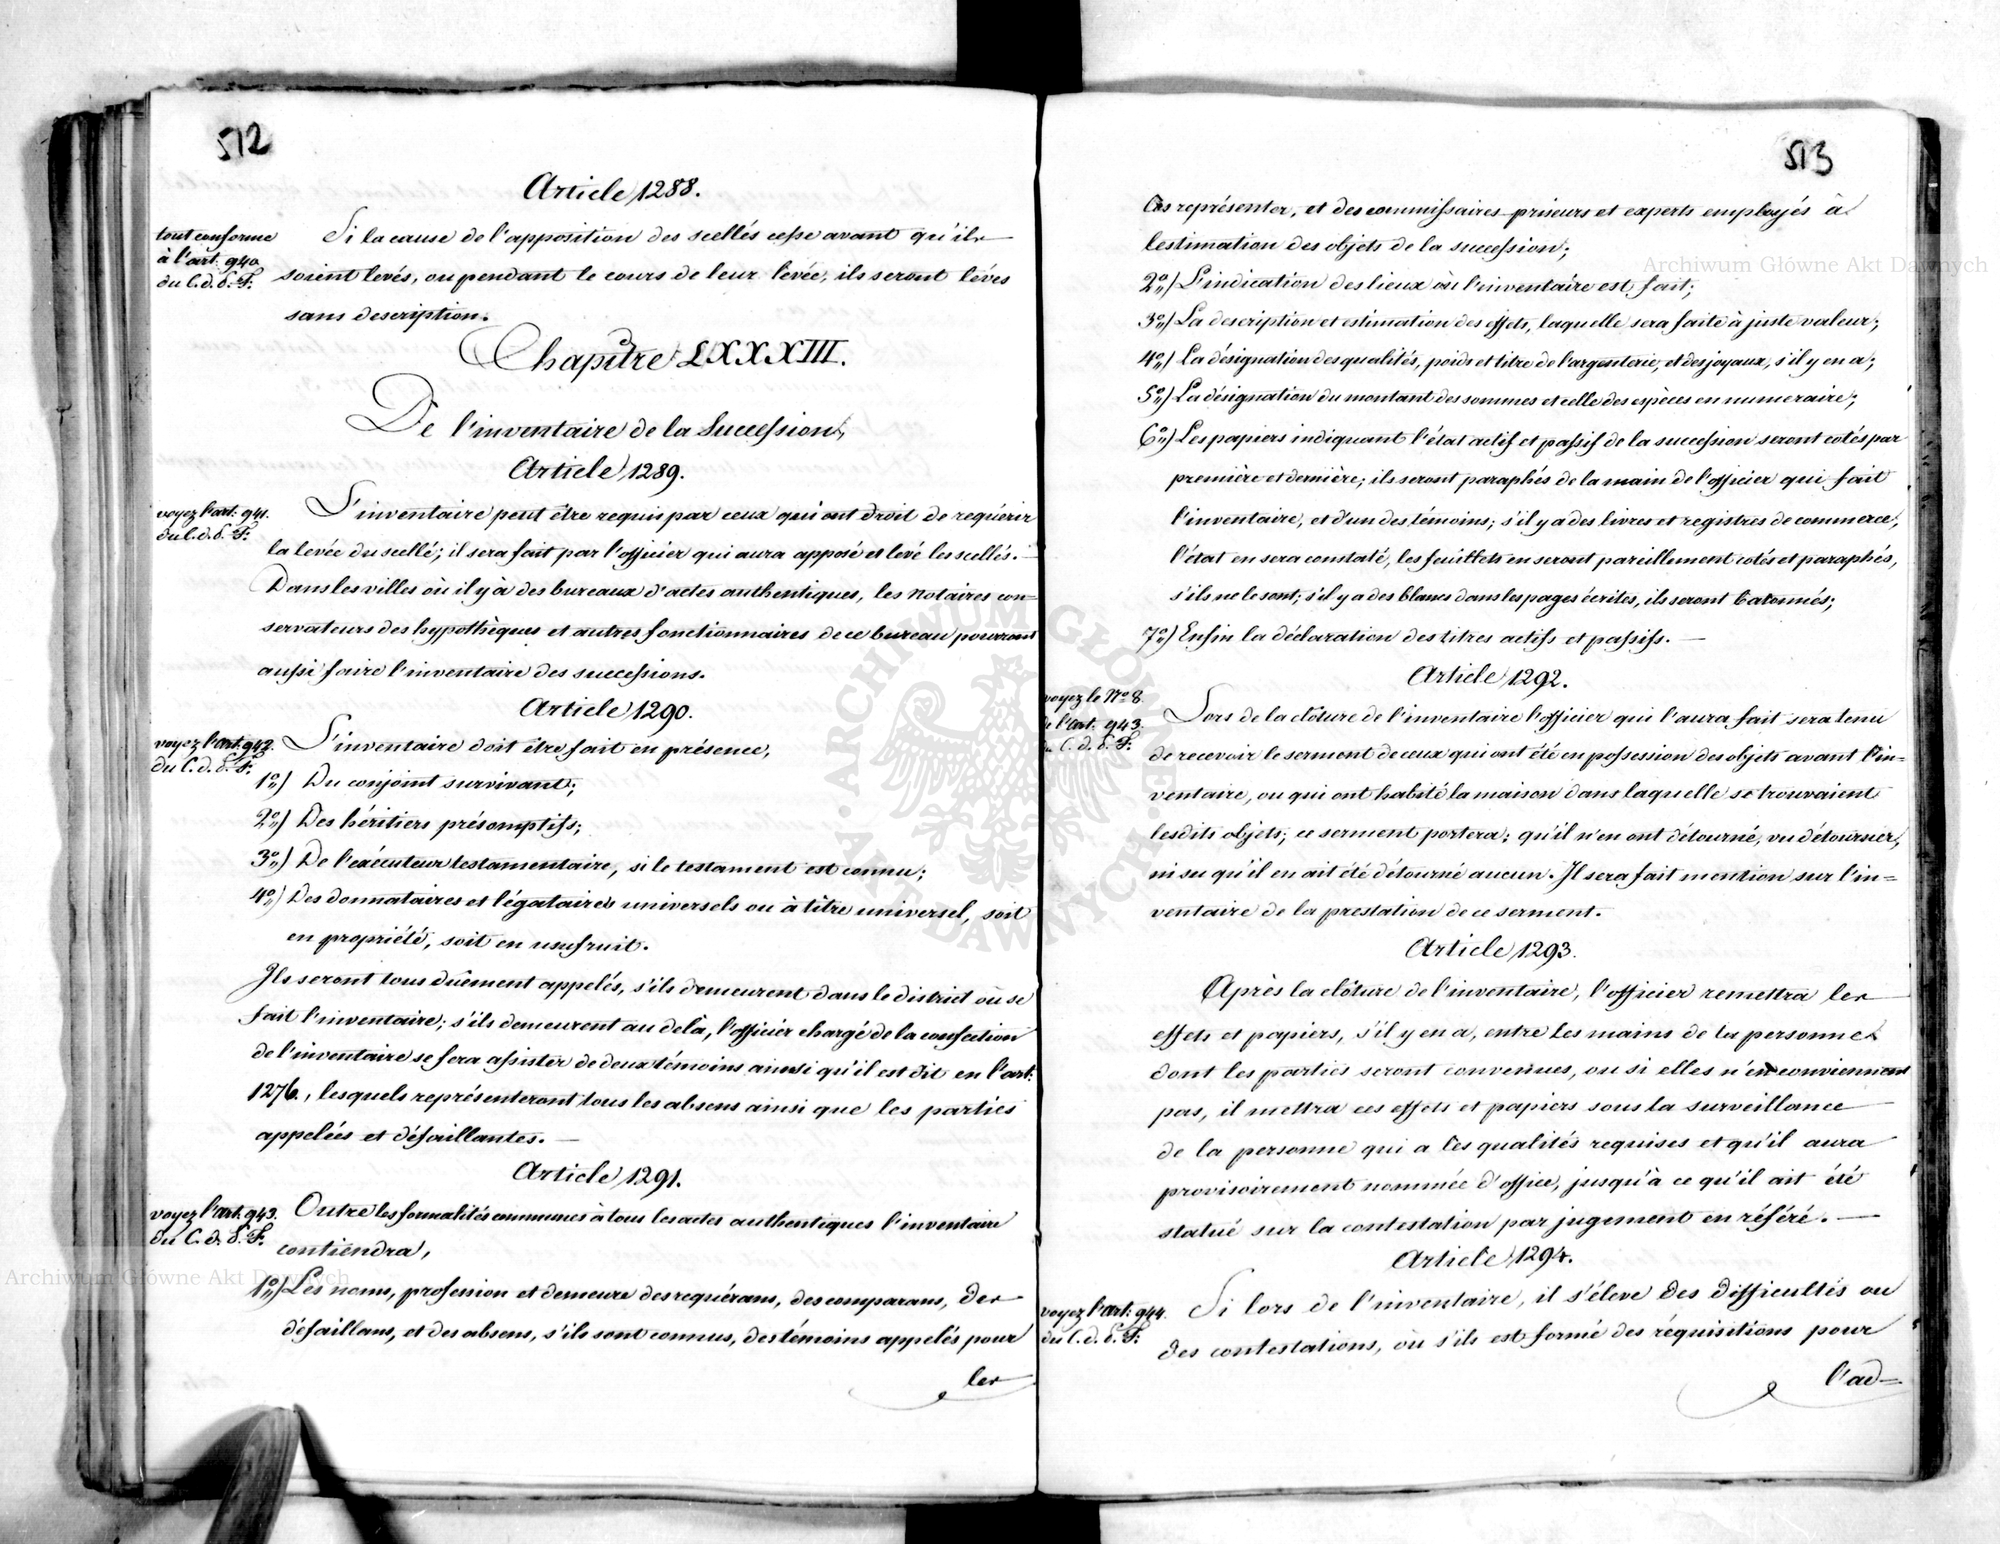 512
Article 1288.
tout conforme
à l'art. 940
du C. d. P. F.
Si la cause de l'apposition des scellés cesse avant qu'ils
soient levés, ou pendant le cours de leur levée, ils seront levés
sans description.
Chapitre LXXXIII.
De l'inventaire de la Succession,
Article 1289.
voyez l'art. 941.
du C. d. P. F.
L'inventaire peut être requis par ceux qui ont droit de requérir
la levée du scellé; il sera fait par l'officier qui aura apposé et levé les scellés. —
Dans les villes où il y à des bureaux d'actes authentiques, les notaires con=
servateurs des hypothèques et autres fonctionnaires de ce bureau pourront
aussi faire l'inventaire des successions.
Article 1290.
voyez l'art. 942.
du C. d. P. F.
L'inventaire doit être fait en présence,
1o) Du conjoint survivant;
2o) Des héritiers présomptifs;
3o) De l'exécuteur testamentaire, si le testament est connu;
4o) Des donnataires et légataires universels ou à titre universel, soit
en propriété, soit en usufruit.
Ils seront tous duement appelés, s'ils demeurent dans le district où se
fait l'inventaire; s'ils demeurent au delà, l'officier chargé de la confection
de l'inventaire se fera assister de deux témoins ainsi qu'il est dit en l'art:
1276., lesquels représenteront tous les absens ainsi que les parties
appelées et défaillantes. —
Article 1291.
voyez l'art. 943.
du C. d. P. F.
Outre les formalités communes à tous les actes authentiques l'inventaire
contiendra,
1o) Les noms, profession et demeure des requérans, des comparans, des
défaillans, et des absens, s'ils sont connus, des témoins appelés pour
les
513
les représenter, et des commissaires-priseurs et experts employés à
l'estimation des objets de la succession;
2o) L'indication des lieux où l'inventaire est fait;
3o) La description et estimation des effets, laquelle sera faite à juste valeur;
4o) La désignation des qualités, poids et titre de l'argenterie, et des joyaux, s'il y en a;
5o) La désignation du montant des sommes et celle des espèces en numeraire;
6o) Les papiers indiquant l'état actif et passif de la succession seront cotés par
première et dernière; ils seront paraphés de la main de l'officier qui fait
l'inventaire, et d'un des témoins; s'il y a des livres et registres de commerce,
l'état en sera constaté, les feuillets en seront pareillement cotés et paraphés,
s'ils ne le sont; s'il y a des blancs dans les pages écrites, ils seront batonnés;
7o) Enfin la déclaration des titres actifs et passifs. —
Article 1292.
voyez le No 8.
de l'art. 943.
du C. d. P. F.
Lors de la clôture de l'inventaire l'officier qui l'aura fait sera tenu
de recevoir le serment de ceux qui ont été en possession des objets avant l'in=
ventaire, ou qui ont habité la maison dans laquelle se trouvaient
lesdits objets; ce serment portera: qu'il n'en ont détourné, vu détourner,
ni su qu'il en ait été détourné aucun. Il sera fait mention sur l'in=
ventaire de la prestation de ce serment.
Article 1293.
Après la clôture de l'inventaire, l'officier remettra les
effets et papiers, s'il y en a, entre les mains de la personne
dont les parties seront convenues, ou si elles n'en conviennent
pas, il mettra ces effets et papiers sous la surveillance
de la personne qui a les qualités requises et qu'il aura
provisoirement nommée d'office, jusqu'à ce qu'il ait été
statué sur la contestation par jugement en référé. —
Article 1294.
voyez l'art. 944.
du C. d. P. F.
Si lors de l'inventaire, il s'éleve des difficultés ou
des contestations, où s'ils est formé des réquisitions pour
l'ad=
Archiwum Główne Akt Dawnych
Archiwum Główne Akt Dawnych
· ARCHIWUM GŁÓWNE · AKT DAWNYCH